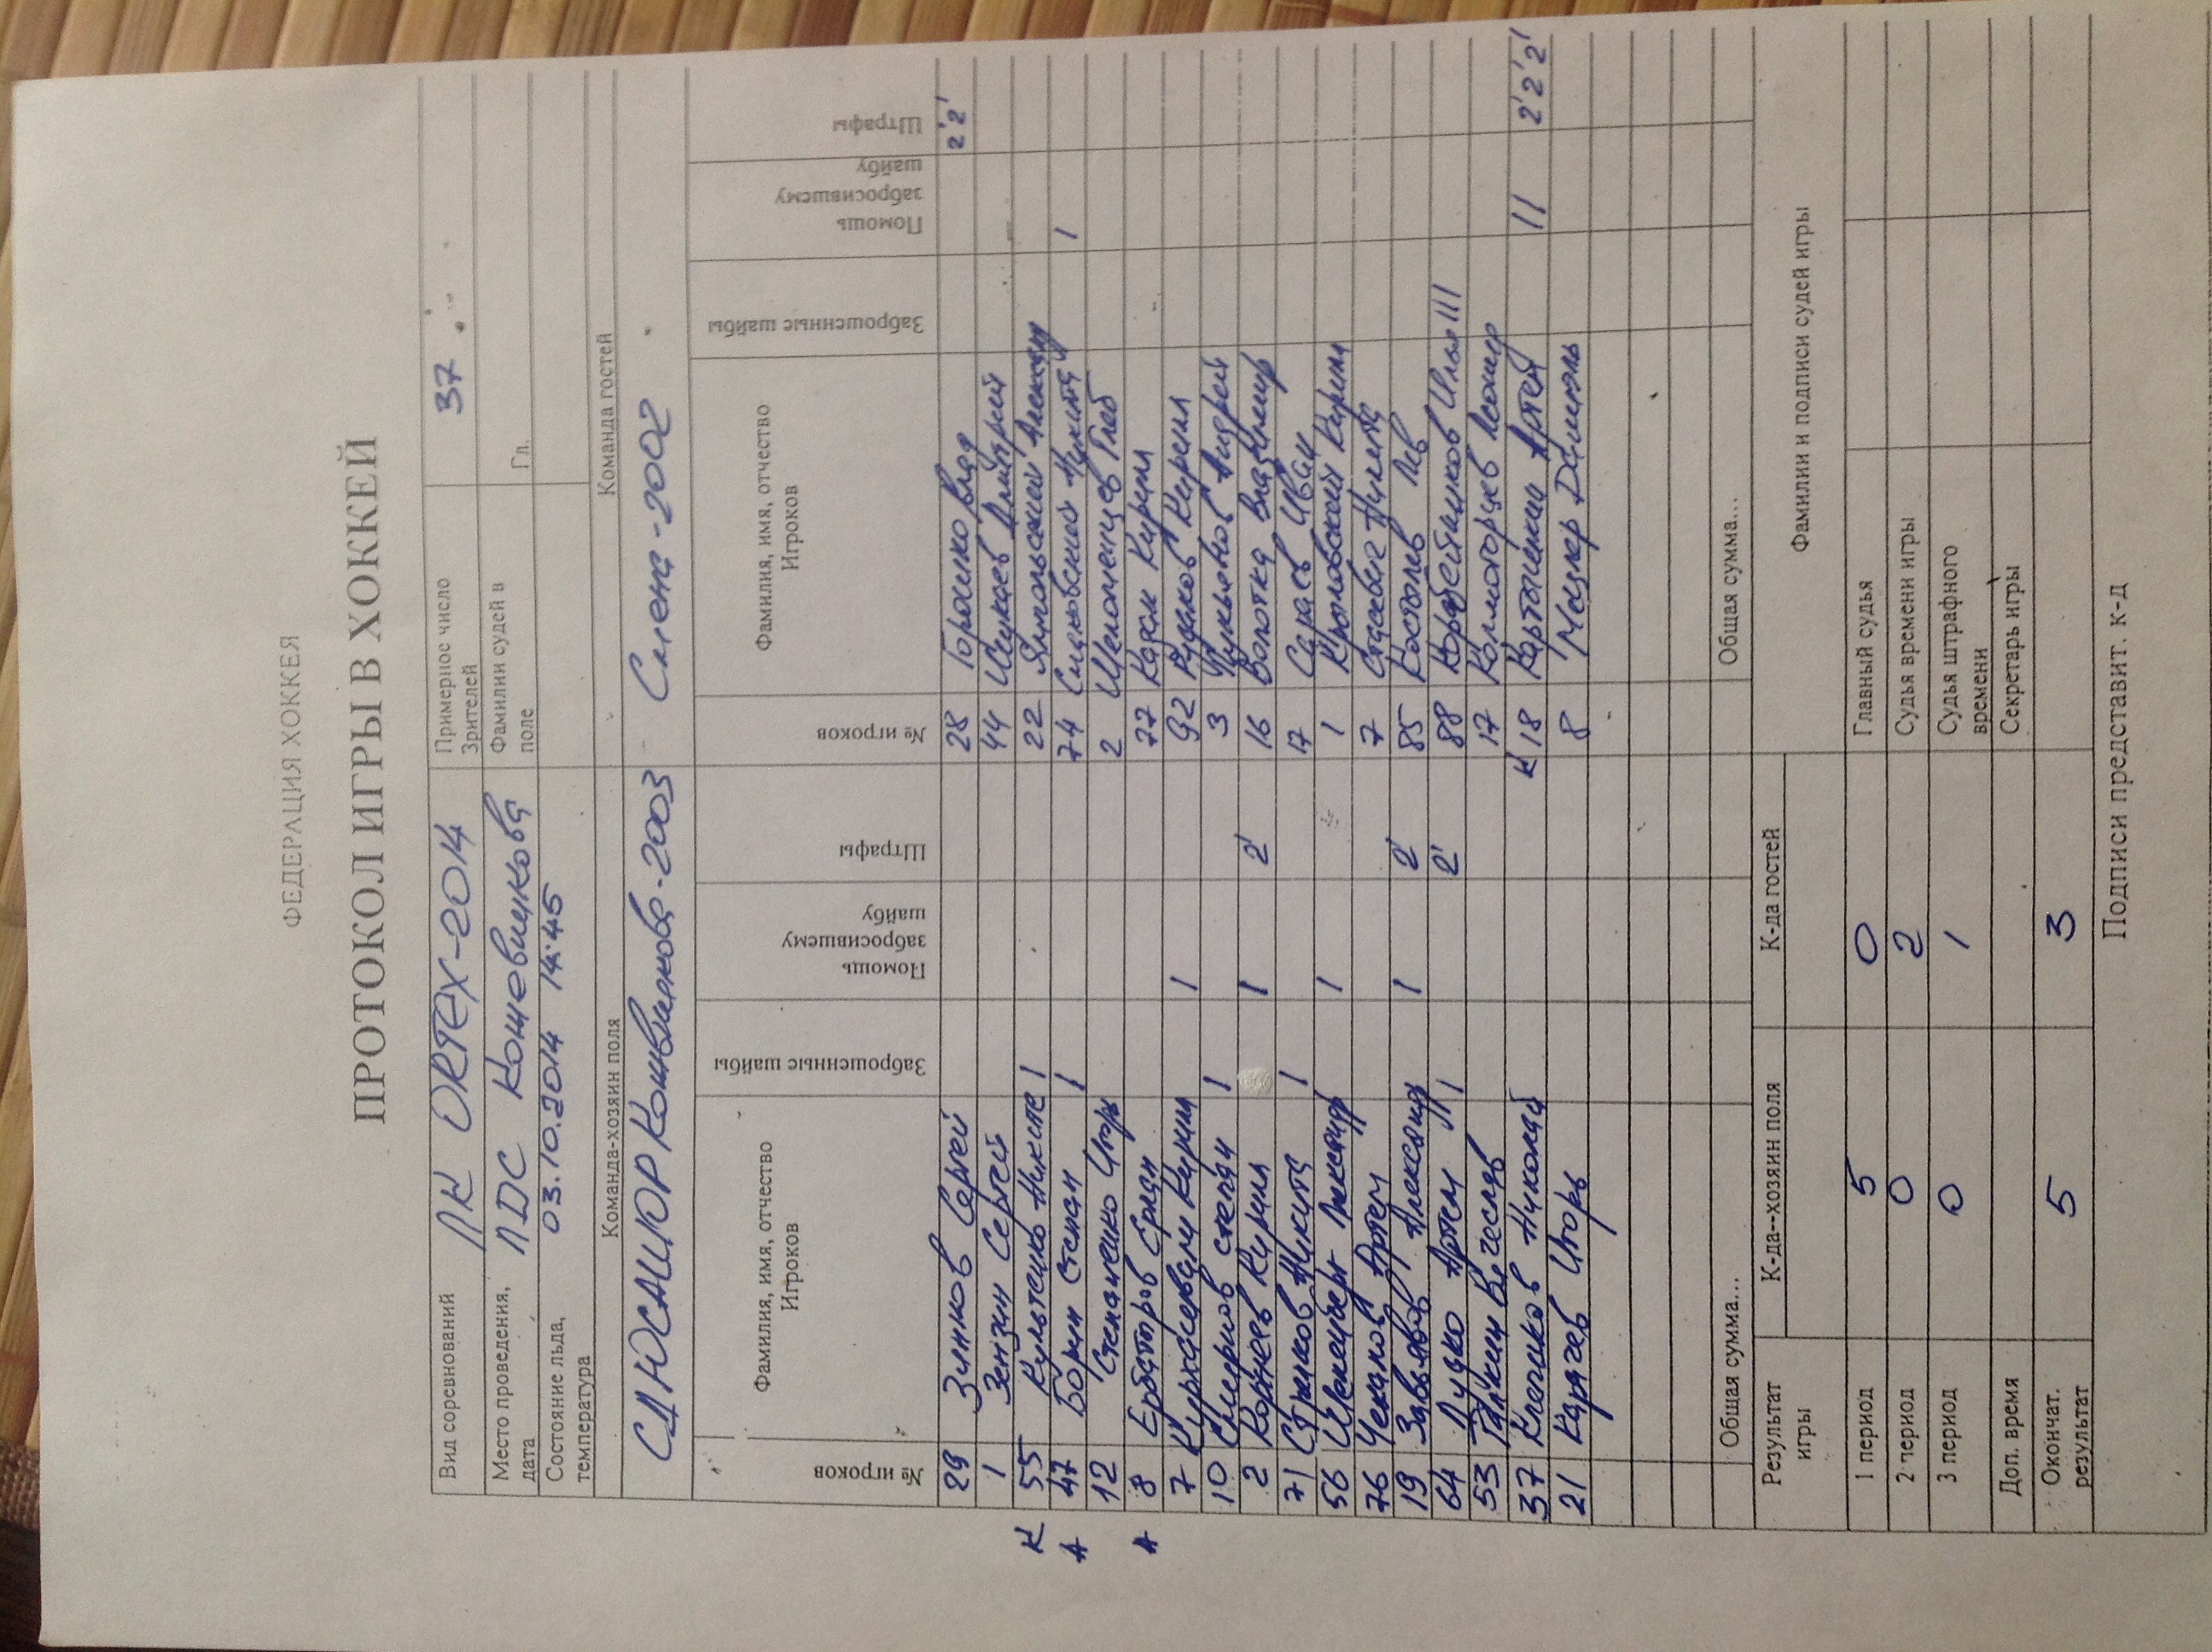 ФЕДЕРАЦИЯ ХОККЕЯ
ПРОТОКОЛ ИГРЫ В ХОККЕЙ
Вид соревнований ЛК ORTEX-2014 Примерное число Зрителей 37
Место проведения, дата ЛДС Кожевникова Фамилии судей в поле Гл.
Состояние льда, температура 03.10.2014 14:45
Команда-хозяин поля Команда гостей
СДЮСАШОР Кожевникова-2003 Смена-2002
№ игроков Фамилия, имя, отчество Игроков Заброшенные шайбы Помощь забросившему шайбу Штрафы № игроков Фамилия, имя, отчество Игроков Заброшенные шайбы Помощь забросившему шайбу Штрафы
29 Зимков Сергей 28 Горошко Влад 2' 2'
1 Зензин Сергей 44 Ишкаев Дмитрий
К 55 Никита 1 22 Ямпольский
А 47 Борин Степан 1 74 Никита 1
12 Степанченко Игорь 2 Глеб
А 8 77 Кирилл
7 Кирилл 1 92 Рудаков Кирилл
10 Смирнов Степан 1 3 Андрей
2 Корнеев Кирилл 1 2' 16 Болотка Владимир
71 Стриков Никита 1 17 Сараев Иван
56 Александр 1 1 Кирилл
76 Чеканов Артем 7 Никита
19 Завьялов Александр 1 2' 85 Костылев Лев
64 Луцко Артем 11 2' 88 Коробейников Илья 111
53 Галкин Вячеслав 17 Колмогорцев
37 Клочихов Николай К 18 Артем 11 2' 2' 2'
21 Карачев Игорь 8 Мецлер Даниэль
Общая сумма... Общая сумма...
Результат игры К-да--хозяин поля К-да гостей Фамилии и подписи судей игры
1 период 5 0 Главный судья
2 период 0 2 Судья времени игры
3 период 0 1 Судья штрафного времени
Доп. время Секретарь игры
Окончат. результат 5 3
Подписи представит. к-д